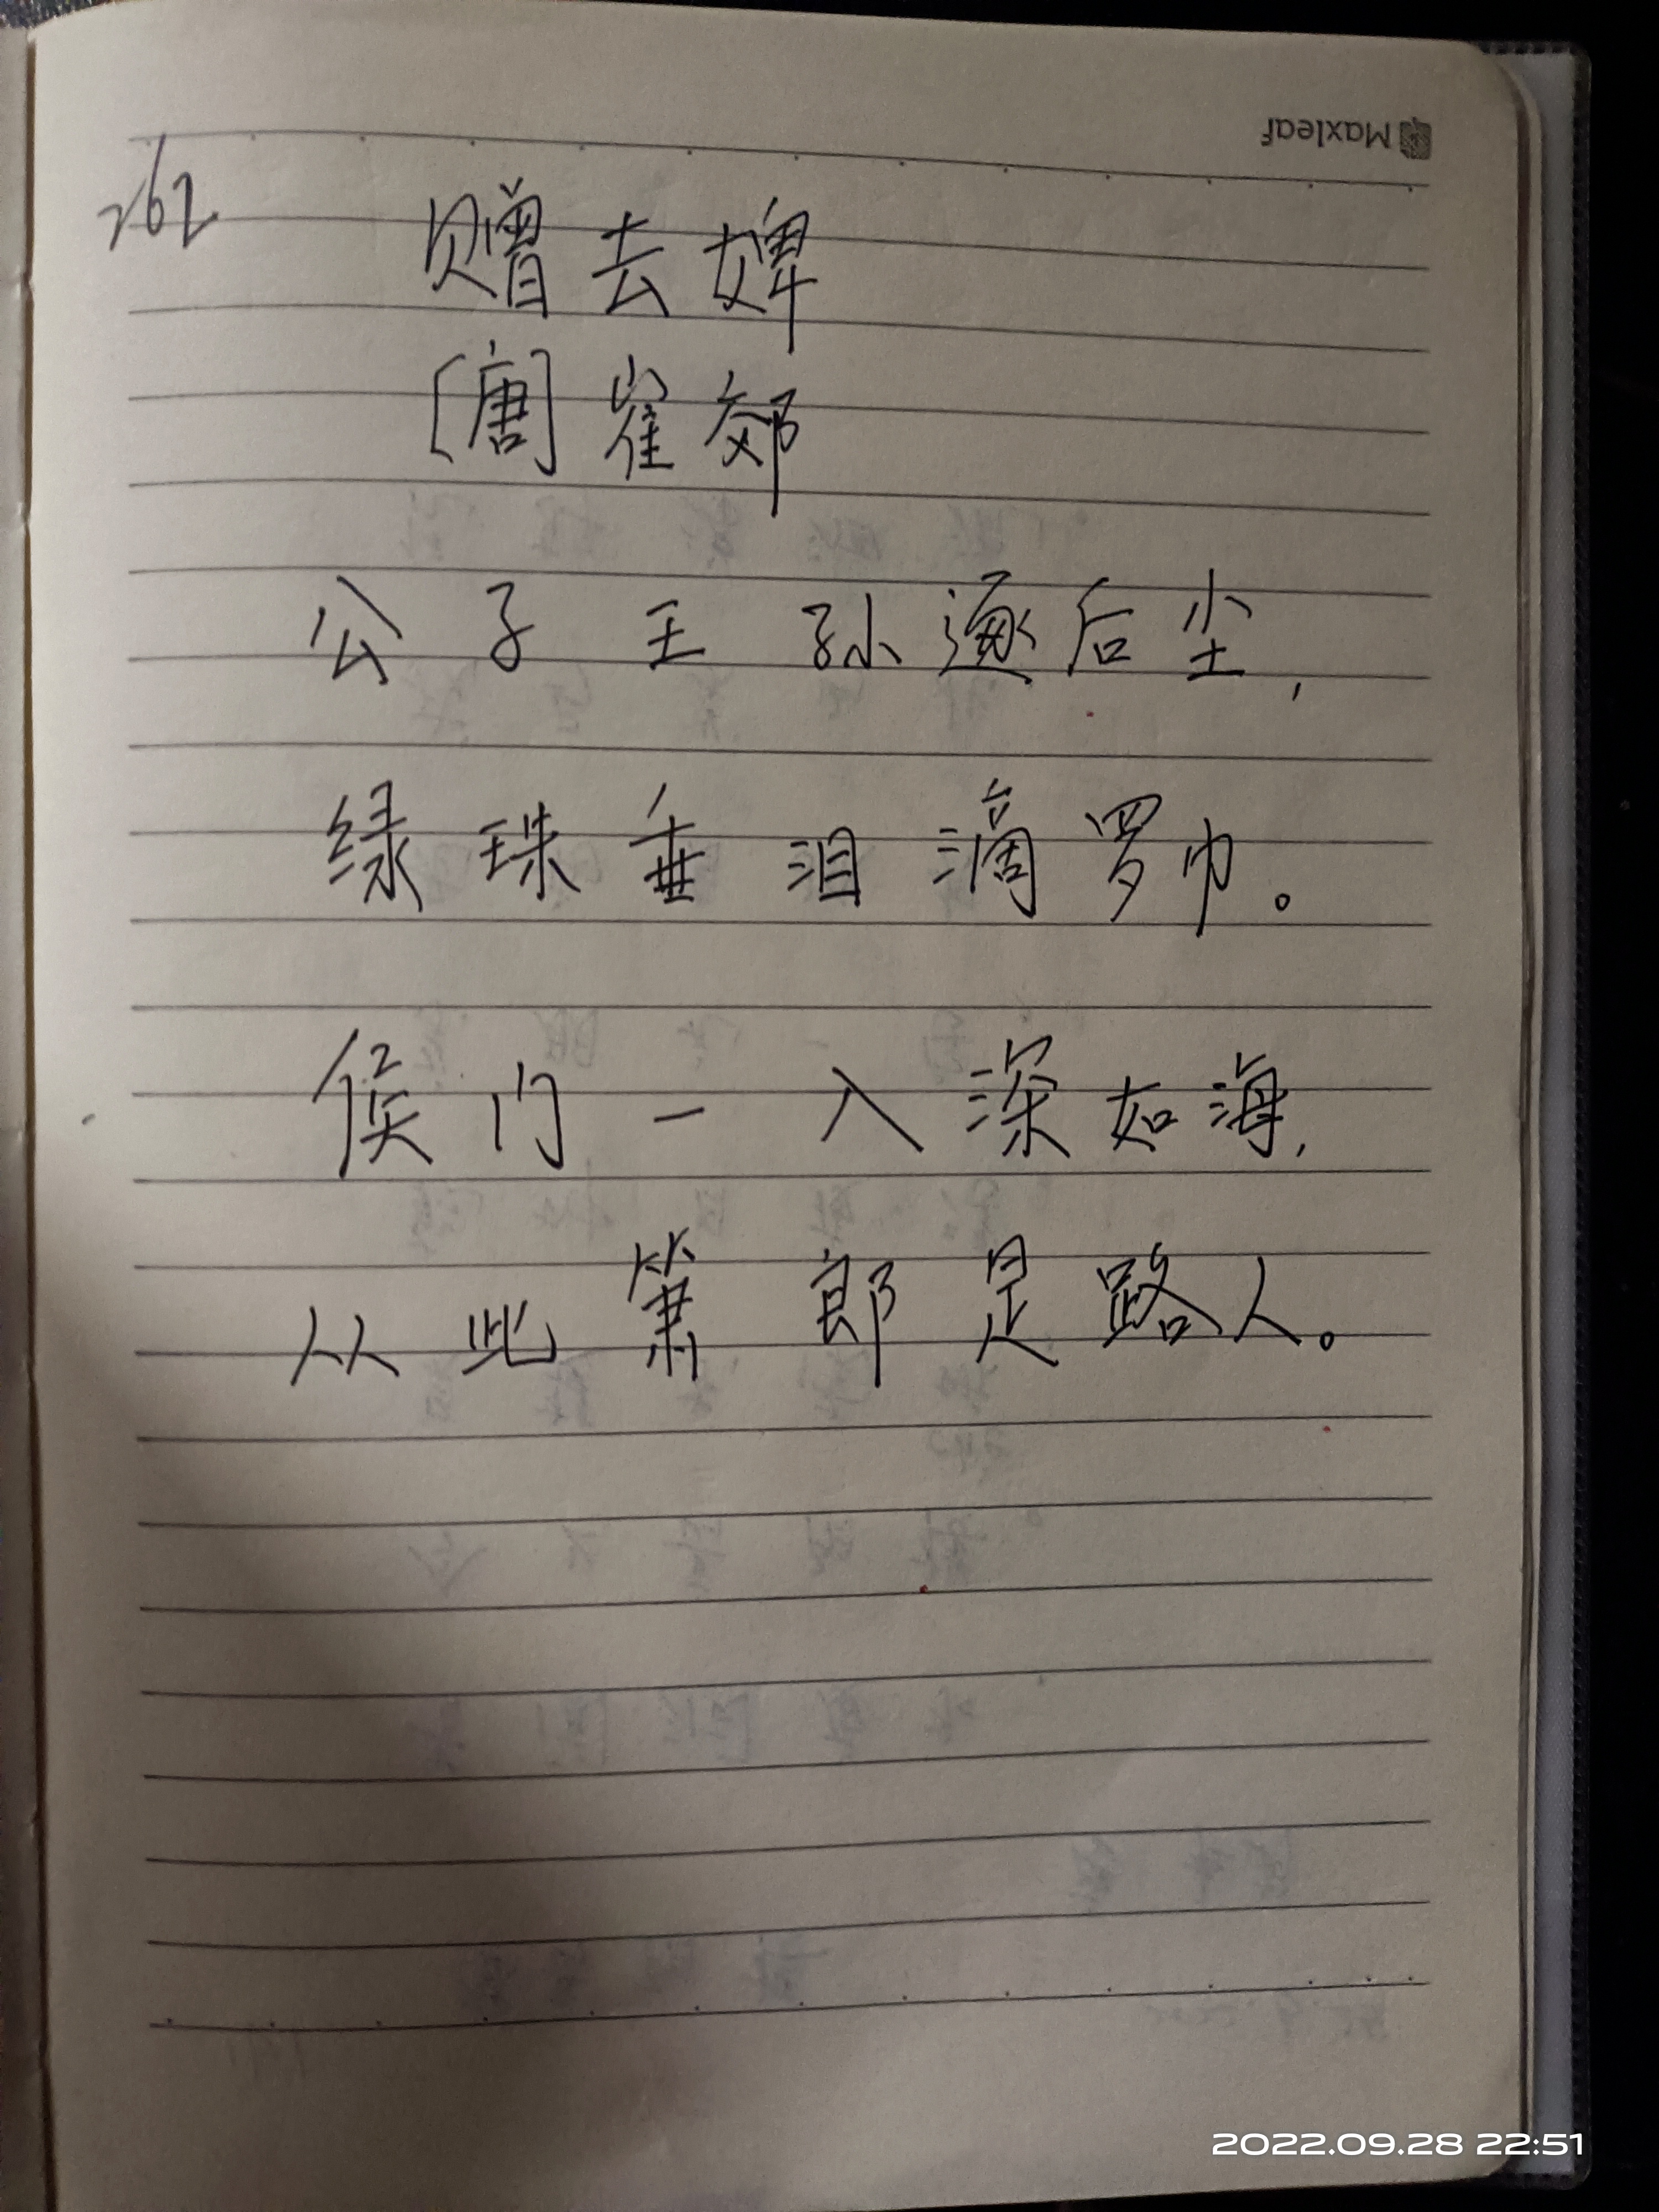 Maxleaf
262
赠去婢
[唐] 崔郊
公子王孙逐后尘，
绿珠垂泪滴罗巾。
侯门一入深如海，
从此箫郎是路人。
2022.09.28 22:51